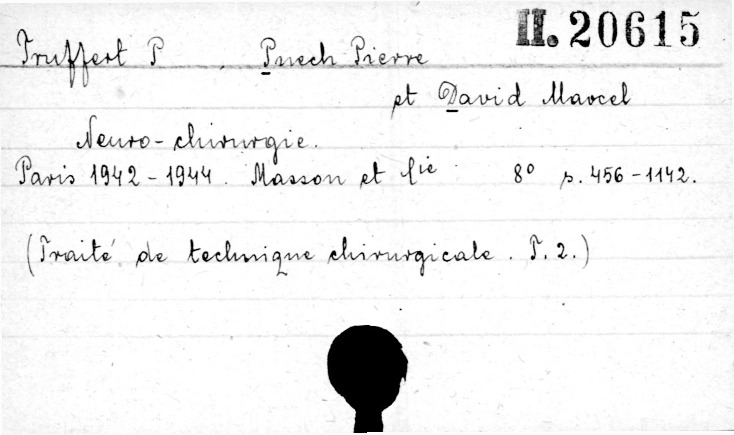 II. 20615
Truffert P , Puech Pierre
et David Marcel
Neuro-chirurgie.
Paris 1942-1944. Masson et Cie 8° p. 456-1142.
(Traité de technique chirurgicale. T. 2.)